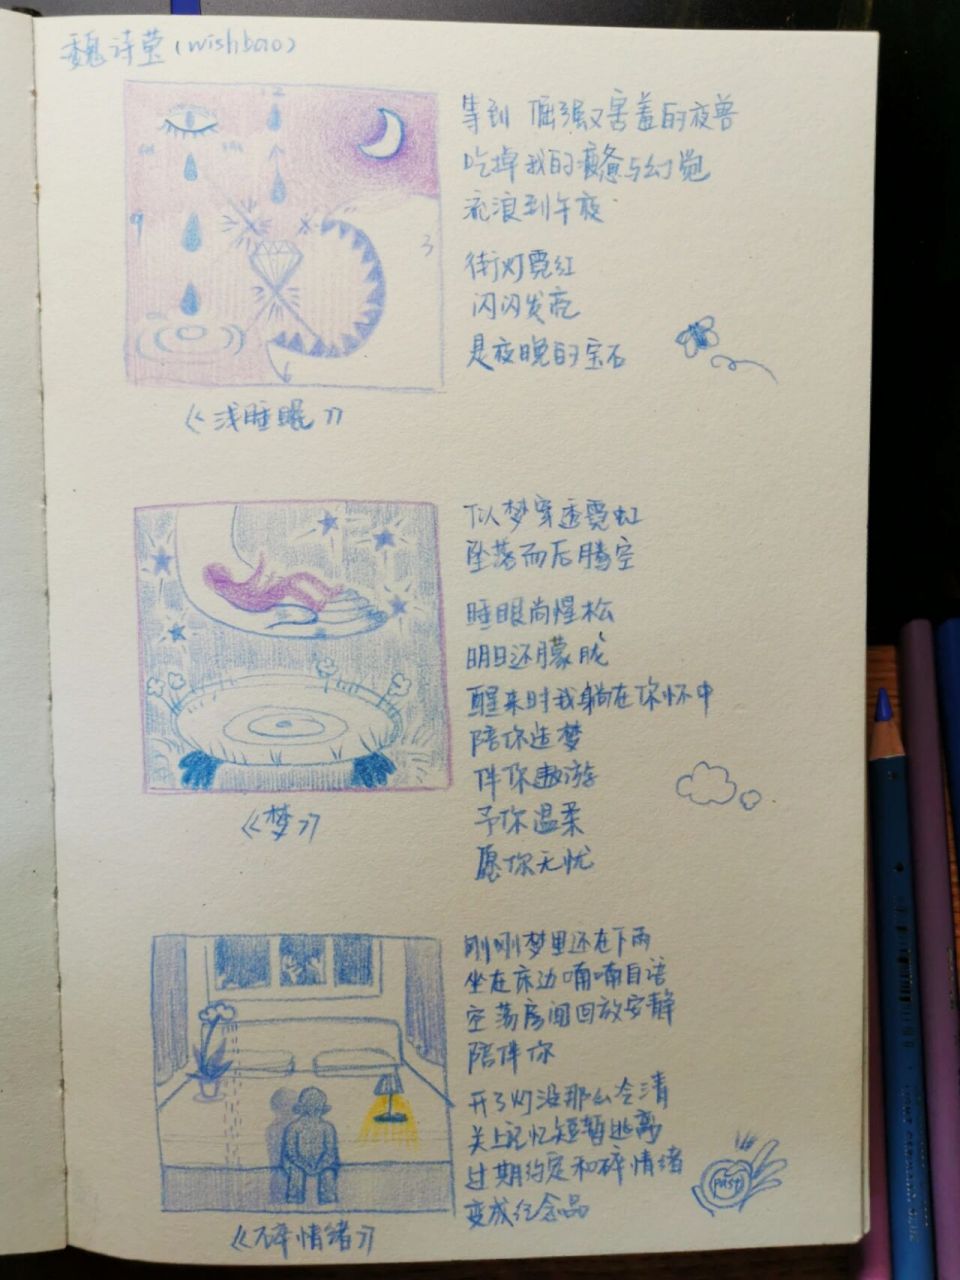 魏诗莹(wishbao)
12
9
3
等到 倔强又害羞的夜兽
吃掉我的疲惫与幻觉
流浪到午夜
街灯霓红
闪闪发亮
是夜晚的宝石
《浅睡眠》
似梦穿透霓虹
坠落而后腾空
睡眼尚惺松
明日还朦胧
醒来时我躺在你怀中
陪你造梦
伴你遨游
予你温柔
愿你无忧
《梦》
刚刚梦里还在下雨
坐在床边喃喃自语
空荡房间回放安静
陪伴你
开了灯没那么冷清
关上记忆短暂逃离
过期约定和碎情绪
变成纪念品
PAST
《碎情绪》